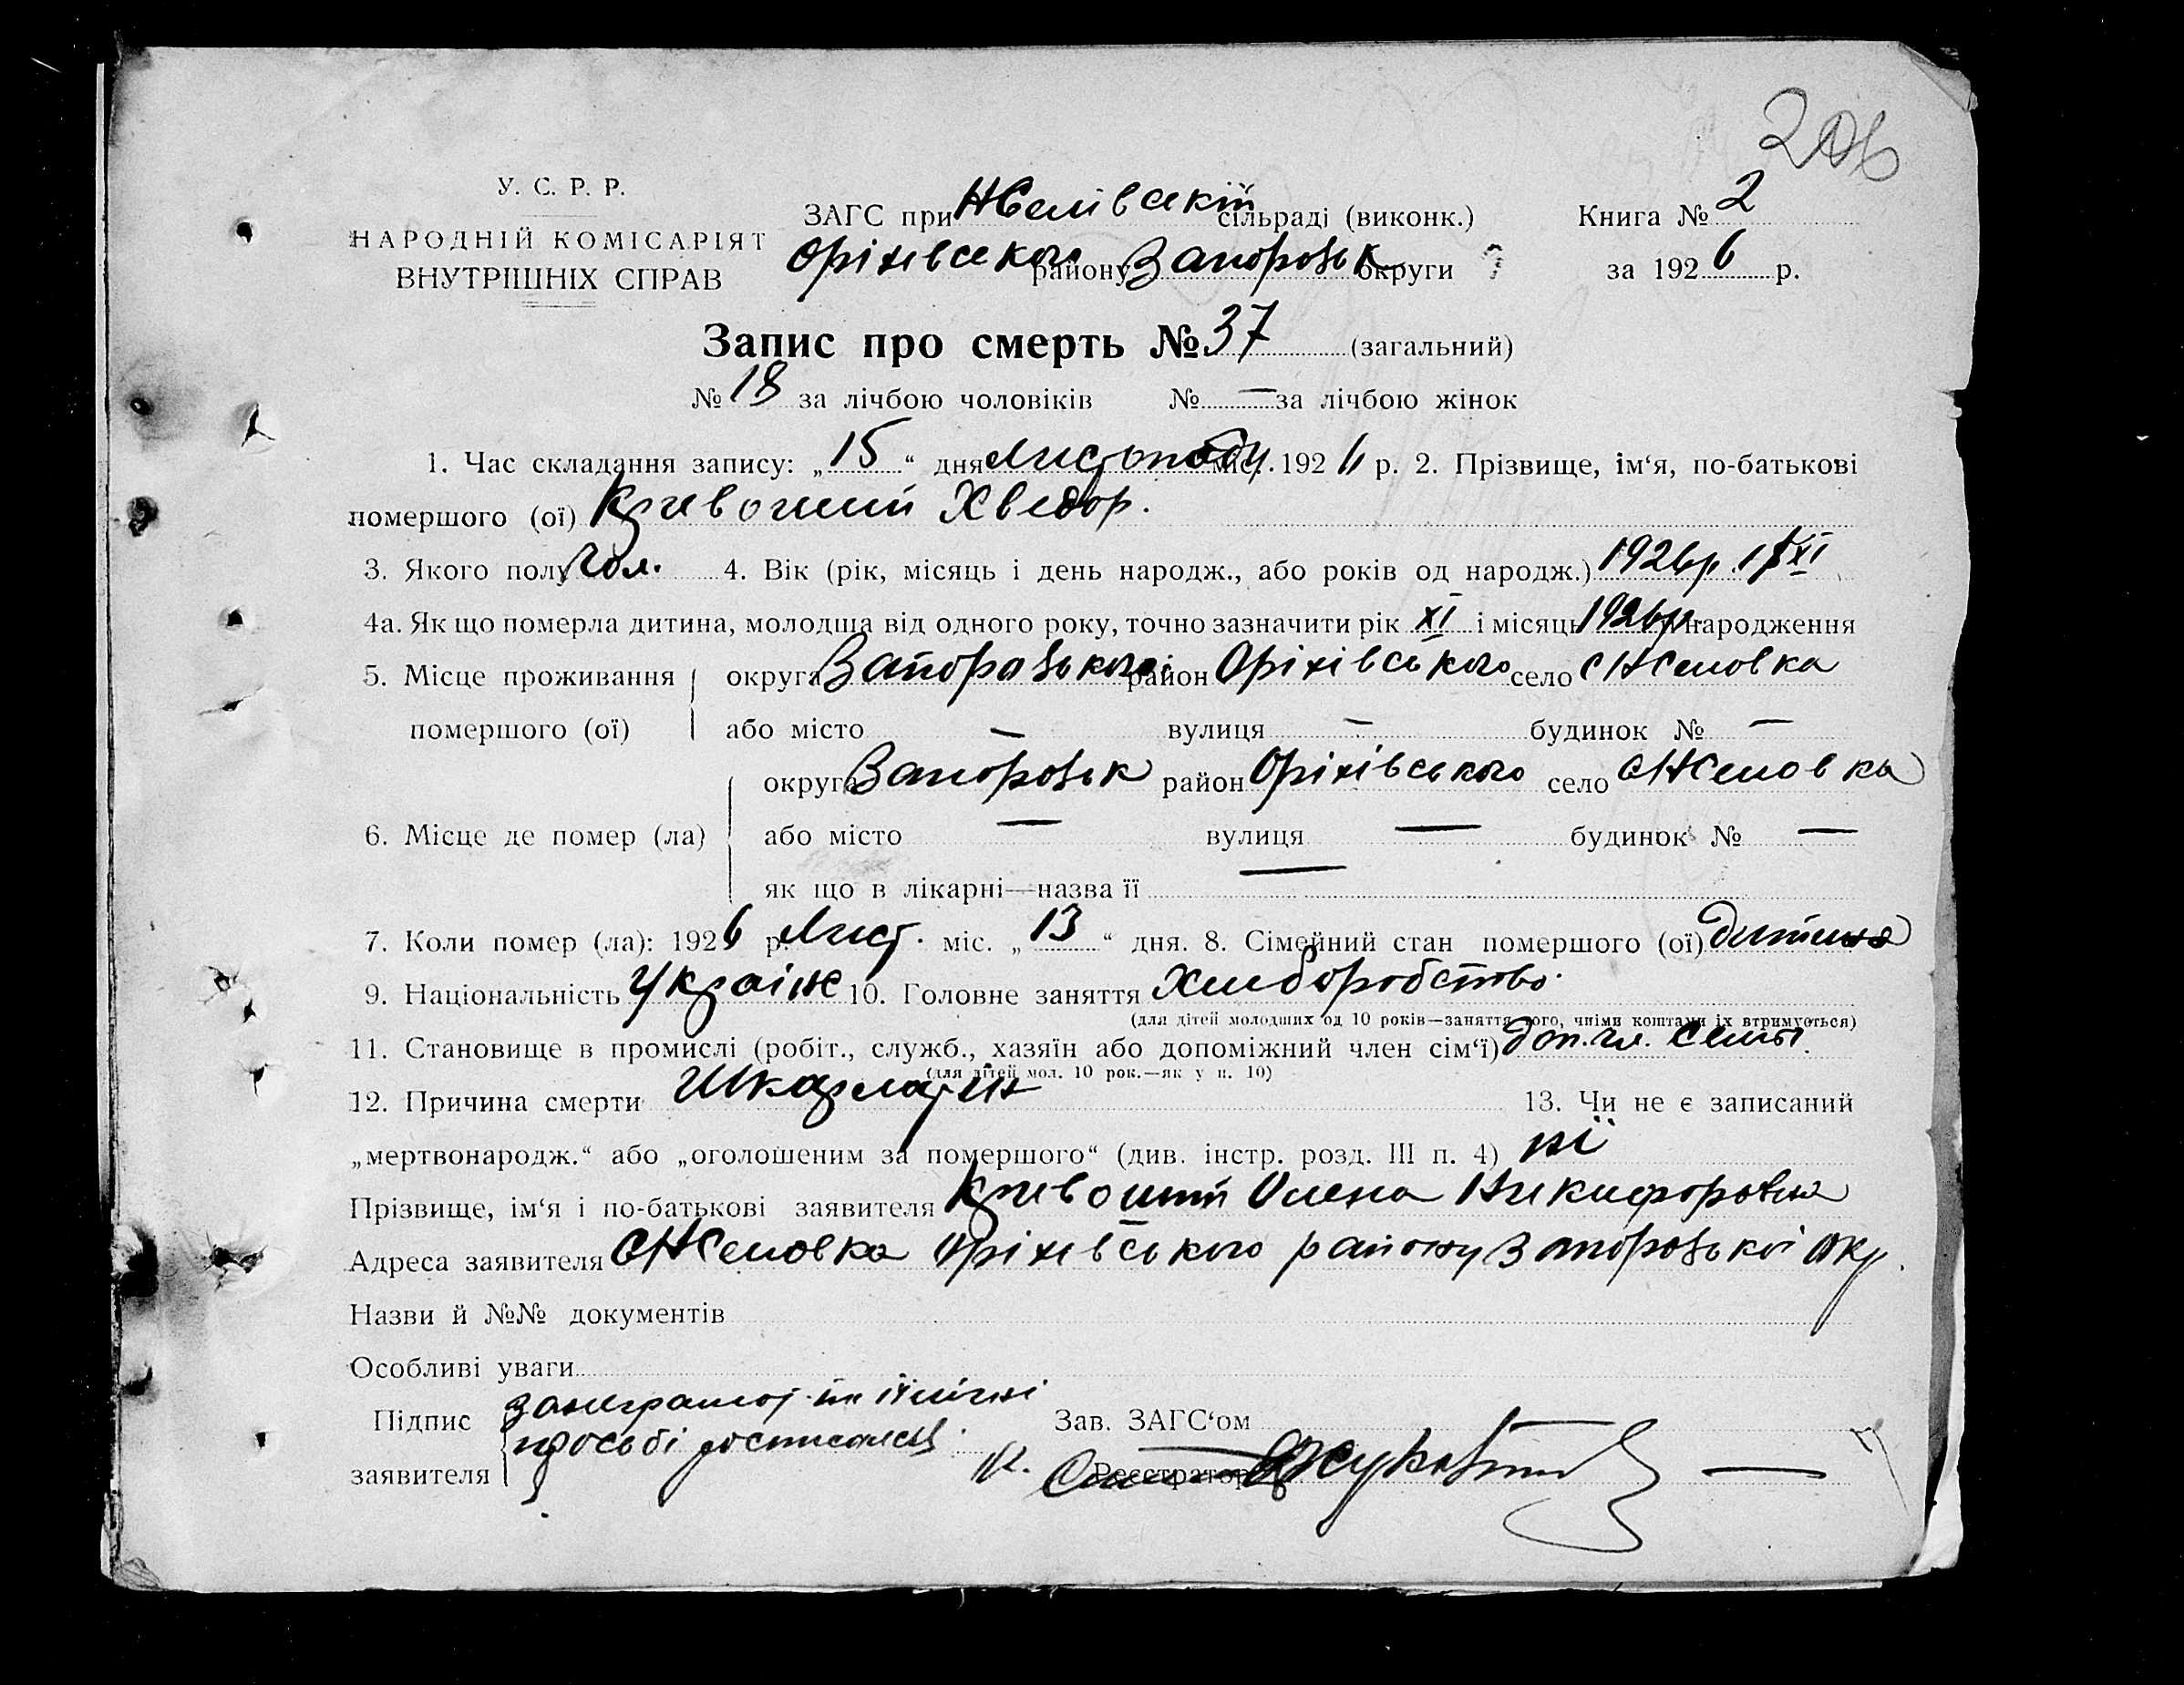 У. С. Р. Р.
НАРОДНІЙ КОМІСАРІЯТ
ВНУТРІШНІХ СПРАВ
ЗАГС при сільраді (виконк.)
Оріхівського району Запорозьк округи
Книга № 2
за 1926 р.
Запис про смерть № 37 (загальний)
№ 18 за лічбою чоловіків № — за лічбою жінок
1. Час складання запису: „15“ дня Листопаду міс. 1926 р. 2. Прізвище, ім‘я, по-батькові
помершого (ої) Кривоший Хведор.
3. Якого полу чол. 4. Вік (рік, місяць і день народж., або років од народж.) 1926 р.
4а. Як що померла дитина, молодша від одного року, точно зазначити рік XI і місяць 1926 р. народження
5. Місце проживання округа Запорозького район Оріхівського село
помершого (ої) або місто — вулиця — будинок № —
округа Запорозьк район Оріхівського село
6. Місце де помер (ла) або місто — вулиця — будинок № —
як що в лікарні—назва її —
7. Коли помер (ла): 1926 р. Лист. міс. „13“ дня. 8. Сімейний стан помершого (ої) дитина
9. Національність Україн 10. Головне заняття Хлиборобство.
(для дітей молодших од 10 років—заняття того, чиїми коштами їх втримується)
11. Становище в промислі (робіт., служб., хазяїн або допоміжний член сім‘ї) доп. чл. семьі.
(для дітей мол. 10 рок.—як у п. 10)
12. Причина смерти Шкарлатин 13. Чи не є записаний
„мертвонародж.“ або „оголошеним за помершого“ (див. інстр. розд. III п. 4) ні
Прізвище, ім‘я і по-батькові заявителя Кривоший Олена Никифоровна
Адреса заявителя Оріхівського району Запорозької Окр.
Назви й №№ документів
Особливі уваги
Підпис за неграмот.
заявителя просьбі росписался.
Зав. ЗАГС‘ом
Реєстратор